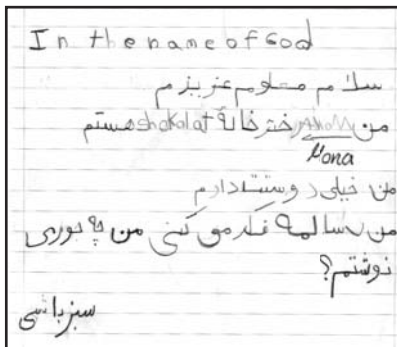 In the name of God
سلام معلوم عزیزم
من دختر خاله shokolat هستم
Mona
من خیلی دوستت دارم
من سالمه فکر می کنی من چه جوری
نوشتم؟
سبز باشی